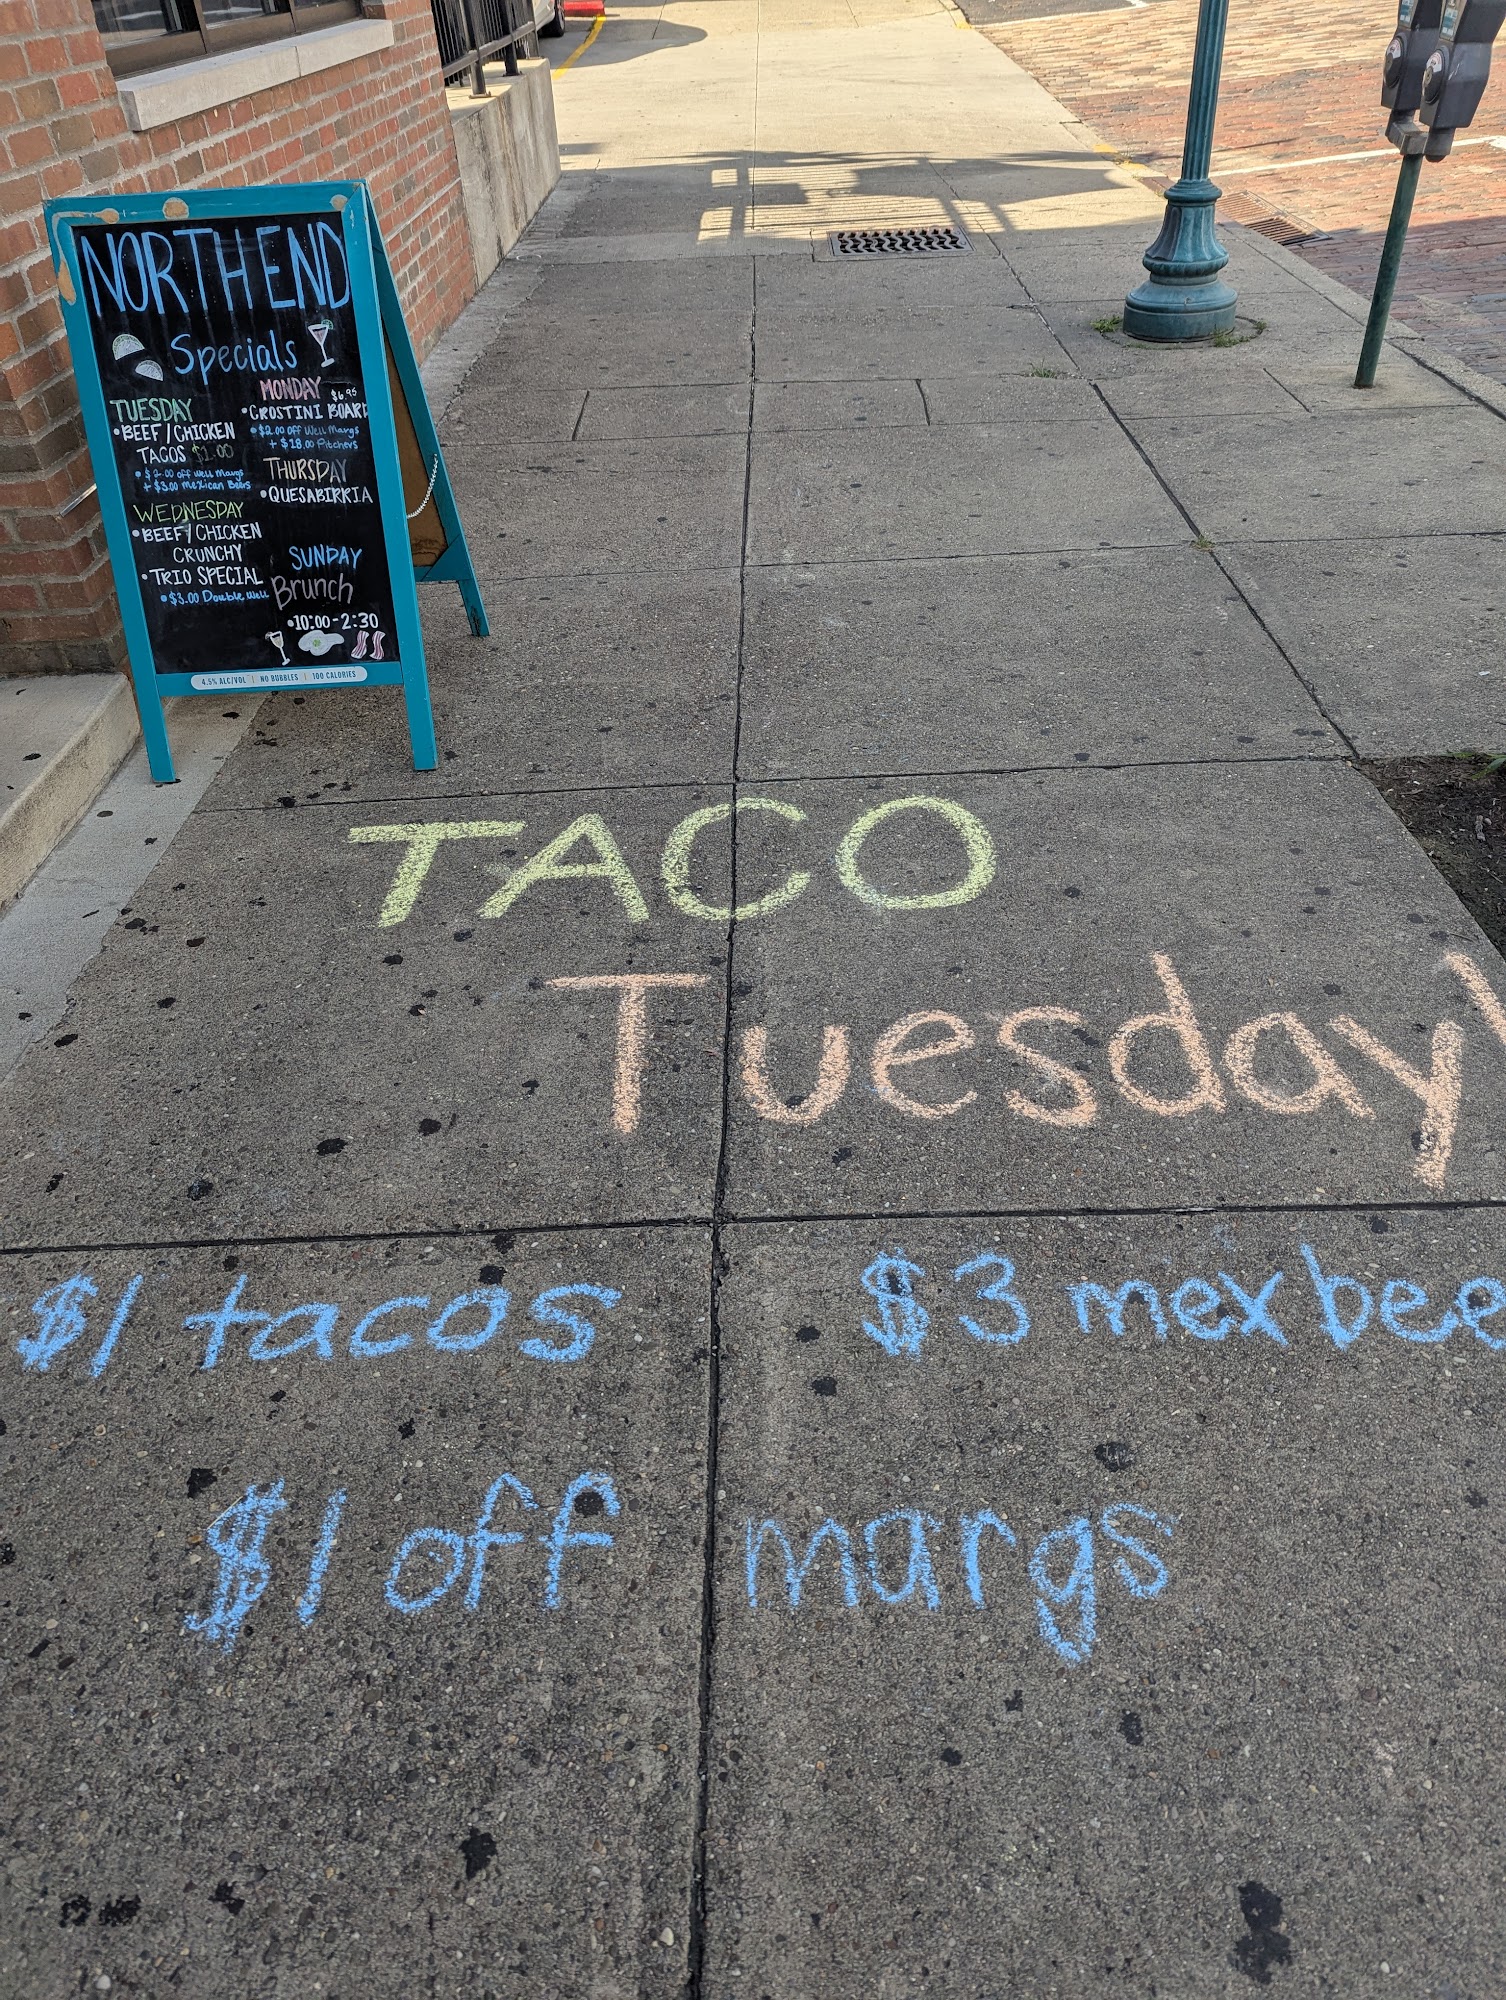 NORTH END
Specials
TUESDAY
• BEEF / CHICKEN
TACOS $1.00
• $2.00 off Well Margs
+ $3.00 Mexican Beers
WEDNESDAY
• BEEF / CHICKEN
CRUNCHY
• TRIO SPECIAL
• $3.00 Double Well
MONDAY $6.95
• CROSTINI BOARD
• $2.00 off Well Margs
+ $18.00 Pitchers
THURSDAY
• QUESABIRRIA
SUNDAY
Brunch
• 10:00-2:30
4.5% ALC/VOL | NO BUBBLES | 100 CALORIES
TACO
Tuesday!
$1 tacos $3 mex bee
$1 off margs